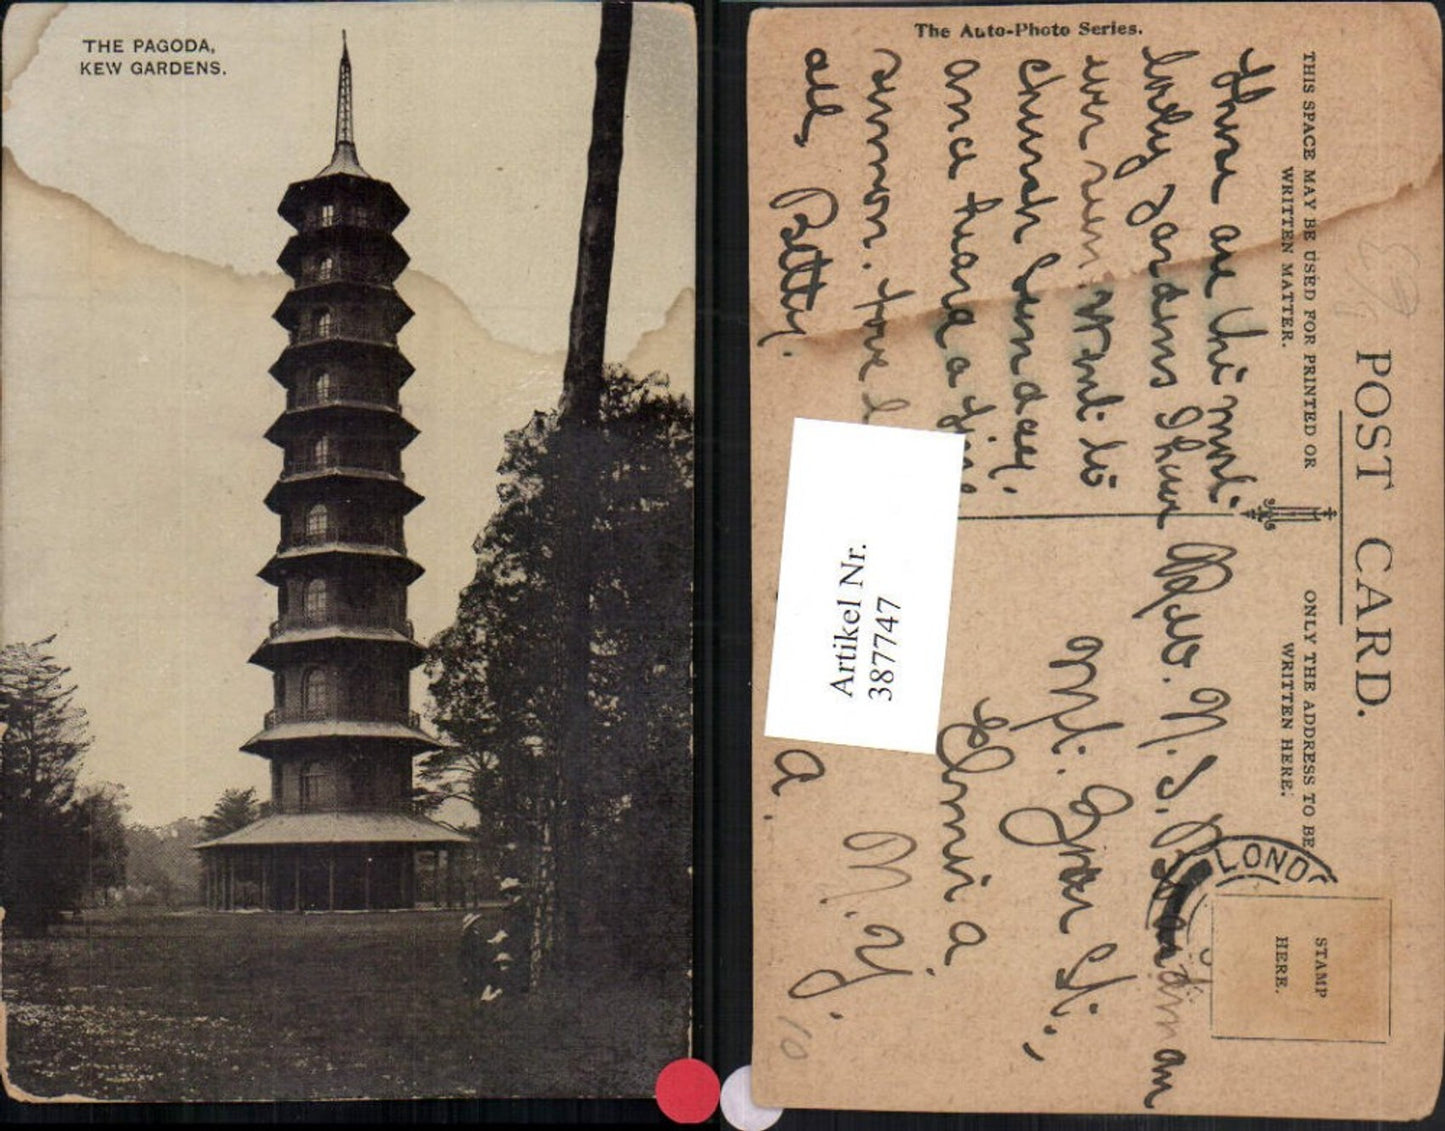 THE PAGODA,
KEW GARDENS.
The Auto-Photo Series.
POST CARD.
THIS SPACE MAY BE USED FOR PRINTED OR
WRITTEN MATTER.
ONLY THE ADDRESS TO BE
WRITTEN HERE.
STAMP
HERE.
LONDO
These are the most
lovely gardens I have
ever seen. Went to
church Sunday,
and heard a fine
sermon. Love
all, Betty.
N. S. Boardman
Mt. Zion St.,
Elmira
N. Y.
a.
10
Artikel Nr.
387747